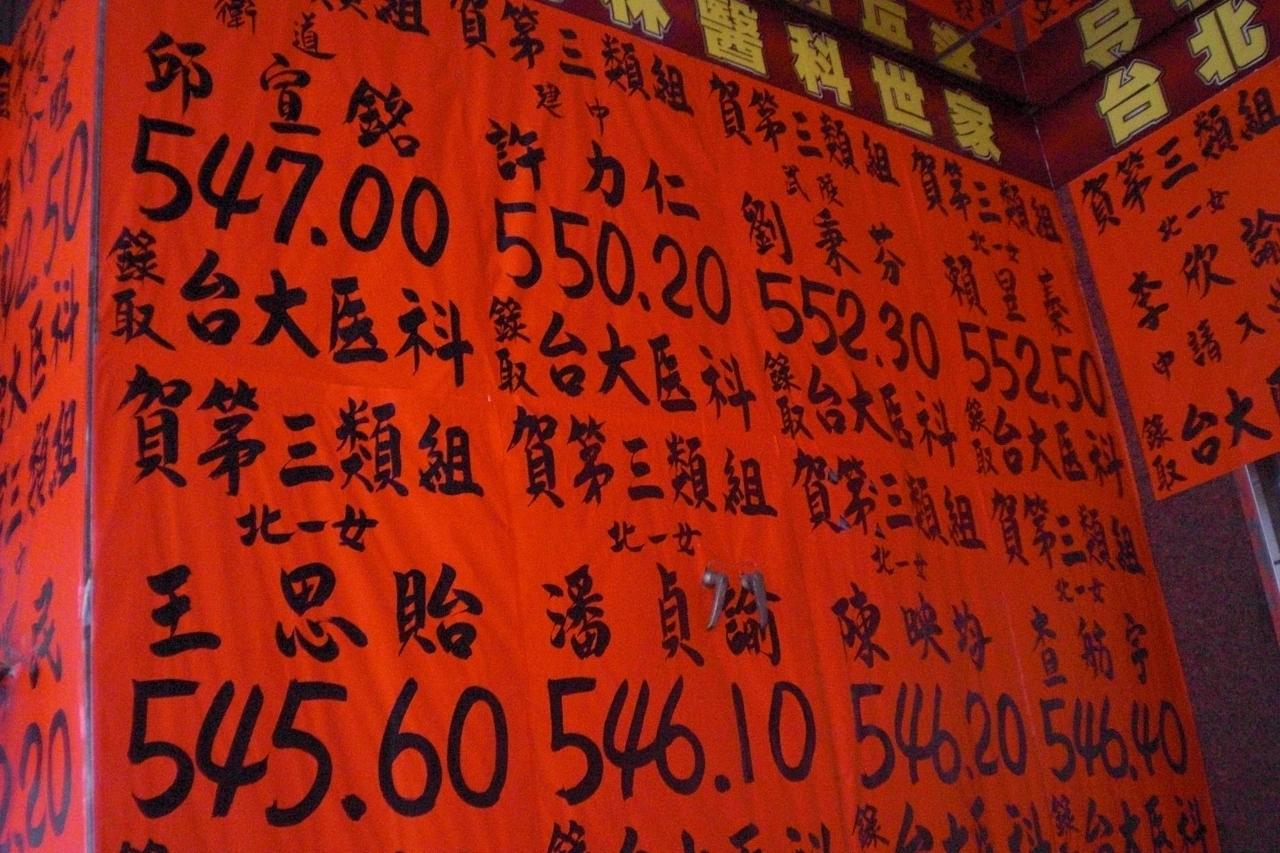 醫科世家
台北
賀第三類組
衛道
邱宣銘
547.00
錄取台大医科
賀第三類組
建中
許力仁
550.20
錄取台大医科
賀第三類組
武陵
劉秉芬
552.30
錄取台大医科
賀第三類組
北一女
賴昱秦
552.50
錄取台大医科
賀第三類組
北一女
李欣諭
申請入
錄取台大
賀第三類組
北一女
王思貽
545.60
賀第三類組
北一女
潘貞諭
546.10
錄台大医科
賀第三類組
北一女
陳映均
546.20
錄台大医科
賀第三類組
北一女
查舫宇
546.40
錄台大医科
三類組
民
.20
.50
医科